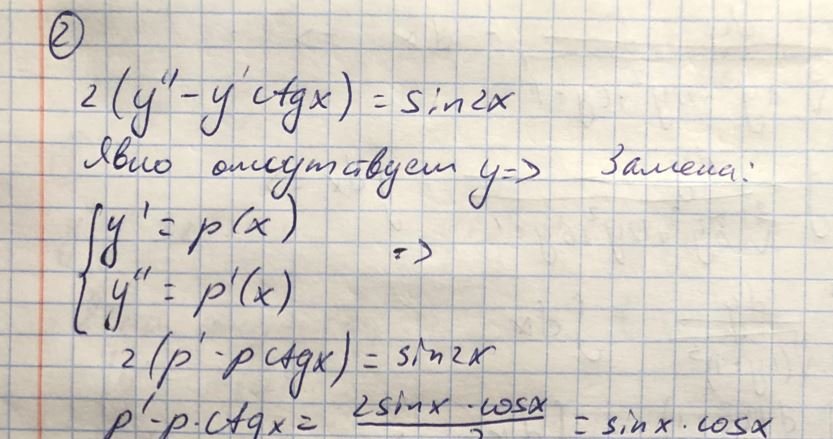 2
2(y'' - y' ctgx) = sin2x
Явно отсутствует y => Замена:
{ y' = p(x)
=>
y'' = p'(x)
2(p' - p ctgx) = sin2x
p' - p · ctgx = 2sinx · cosx / 2 = sinx · cosx